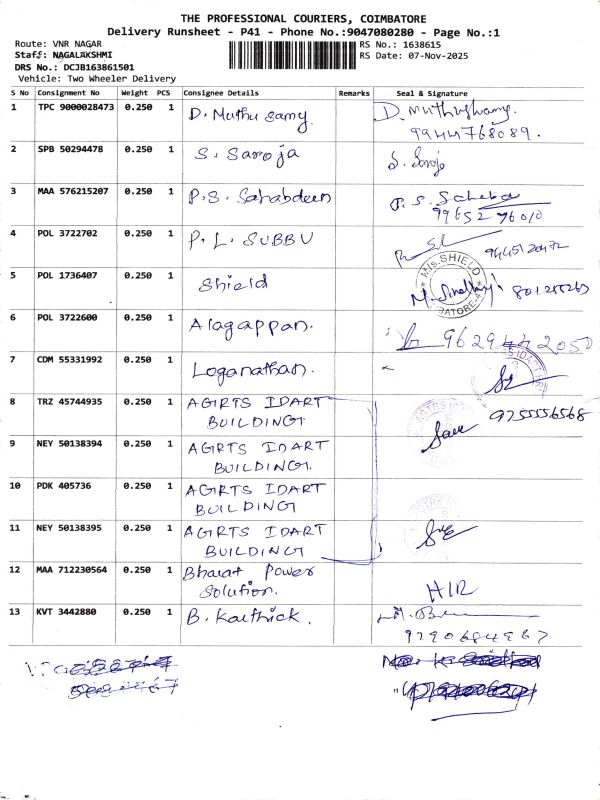 THE PROFESSIONAL COURIERS, COIMBATORE
Delivery Runsheet - P41 - Phone No.:9047080280 - Page No.:1
Route: VNR NAGAR
Staff: NAGALAKSHMI
DRS No.: DCJB163861501
Vehicle: Two Wheeler Delivery
RS No.: 1638615
RS Date: 07-Nov-2025
S No Consignment No Weight PCS Consignee Details Remarks Seal & Signature
1 TPC 9000028473 0.250 1 D. Muthu samy D. Muthuswamy.
9944768089.
2 SPB 50294478 0.250 1 S. Saroja S. Saroja
3 MAA 576215207 0.250 1 P.S. Sahabdeen P. S. Saheba
9965276010
4 POL 3722702 0.250 1 P. L. SUBBU
5 POL 1736407 0.250 1 Shield M/s. SHIELD
6 POL 3722600 0.250 1 Alagappan.
7 CDM 55331992 0.250 1 Loganathan.
8 TRZ 45744935 0.250 1 AGIRTS IDART
BUILDING
9755556568
9 NEY 50138394 0.250 1 AGIRTS IDART
BUILDING.
10 PDK 405736 0.250 1 AGIRTS IDART
BUILDING
11 NEY 50138395 0.250 1 AGIRTS IDART
BUILDING
12 MAA 712230564 0.250 1 Bharat Power
Solution.
H1R
13 KVT 3442880 0.250 1 B. Karthick.
9790684967